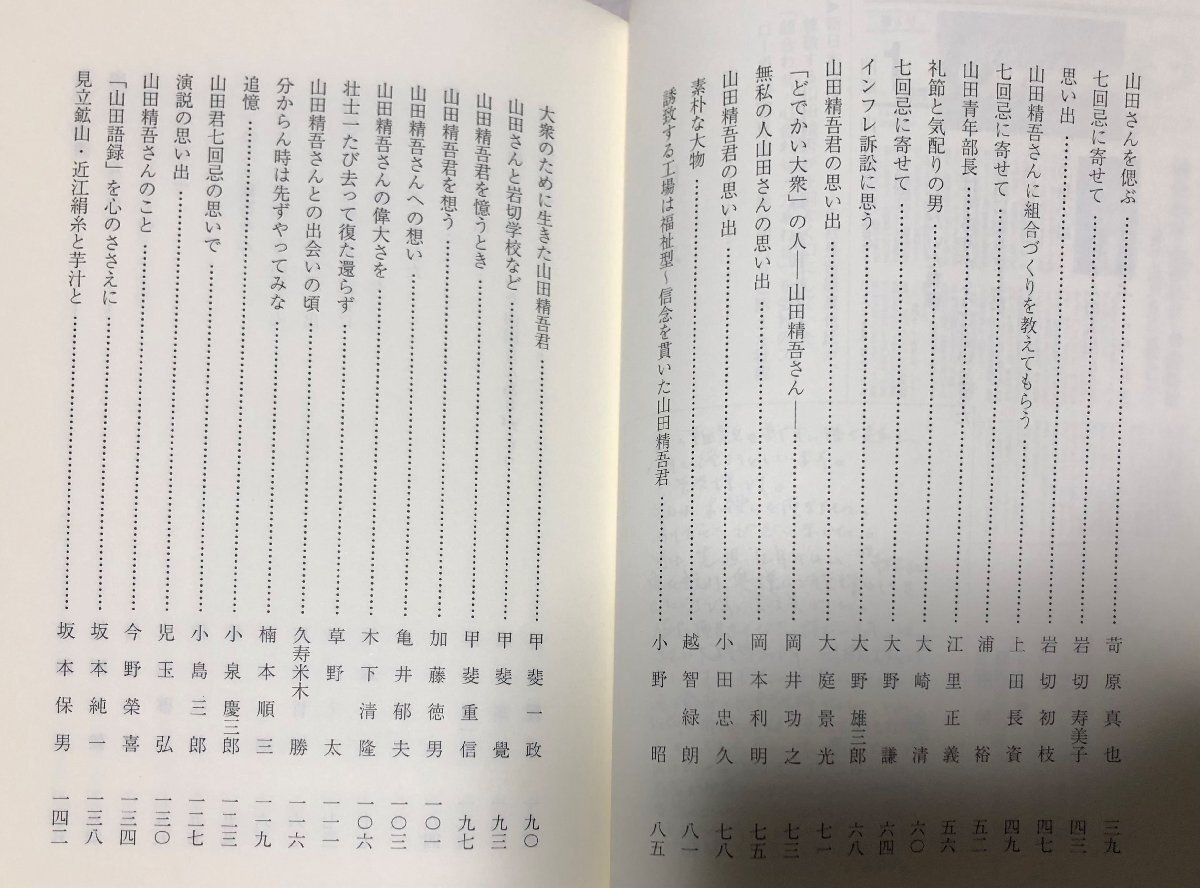 山田さんを偲ぶ……苛原真也 三九
七回忌に寄せて……岩切寿美子 四三
思い出……岩切初枝 四七
山田精吾さんに組合づくりを教えてもらう……上田長資 四九
七回忌に寄せて……浦裕 五二
山田青年部長……江里正義 五六
礼節と気配りの男……大崎清 六〇
七回忌に寄せて……大野謙 六四
インフレ訴訟に思う……大野雄三郎 六八
山田精吾君の思い出……大庭景光 七一
「どでかい大衆」の人――山田精吾さん――……岡井功之 七三
無私の人山田さんの思い出……岡本利明 七五
山田精吾君の思い出……小田忠久 七八
素朴な大物……越智緑朗 八一
誘致する工場は福祉型~信念を貫いた山田精吾君……小野昭 八五
大衆のために生きた山田精吾君……甲斐一政 九〇
山田さんと岩切学校など……甲斐覺 九三
山田精吾君を憶うとき……甲斐重信 九七
山田精吾君を想う……加藤徳男 一〇一
山田精吾さんへの想い……亀井郁夫 一〇三
山田精吾さんの偉大さを……木下清隆 一〇六
壮士一たび去って復た還らず……草野太 一一一
山田精吾さんとの出会いの頃……久寿米木勝 一一六
分からん時は先ずやってみな……楠本順三 一一九
追憶……小泉慶三郎 一二三
山田君七回忌の思いで……小島三郎 一二七
演説の思い出……児玉弘 一三〇
山田精吾さんのこと……今野榮喜 一三四
「山田語録」を心のささえに……坂本純一 一三八
見立鉱山・近江絹糸と芋汁と……坂本保男 一四二